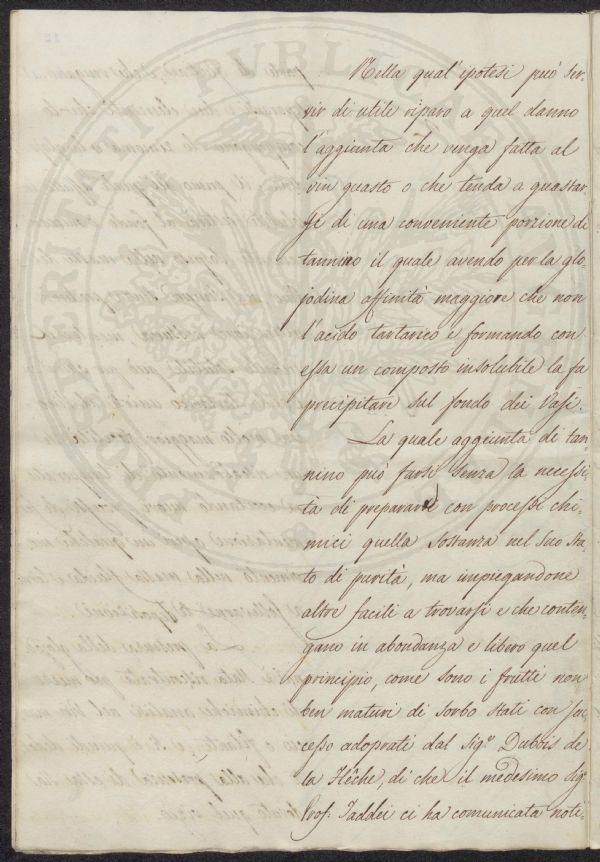 Nella qual'ipotesi può ser-
vir di utile riparo a quel danno
l'aggiunta che venga fatta al
vin guasto o che tenda a guastar-
si di una conveniente porzione di
tannino il quale avendo per la glo-
jodina affinità maggiore che non
l'acido tartarico e formando con
essa un composto insolubile la fa
precipitare sul fondo dei Vasi.
La quale aggiunta di tan-
nino può farsi senza la necessi-
tà di preparare con processi chi-
mici quella Sostanza nel suo sta-
to di purità, ma impiegandone
altre facili a trovarsi e che conten-
gano in abondanza e libero quel
principio, come sono i frutti non
ben maturi di sorbo stati con suc-
cesso adoprati dal Sig.r Dubois de
la Flêche, di che il medesimo Sig.
Prof. Taddei ci ha comunicata noti-